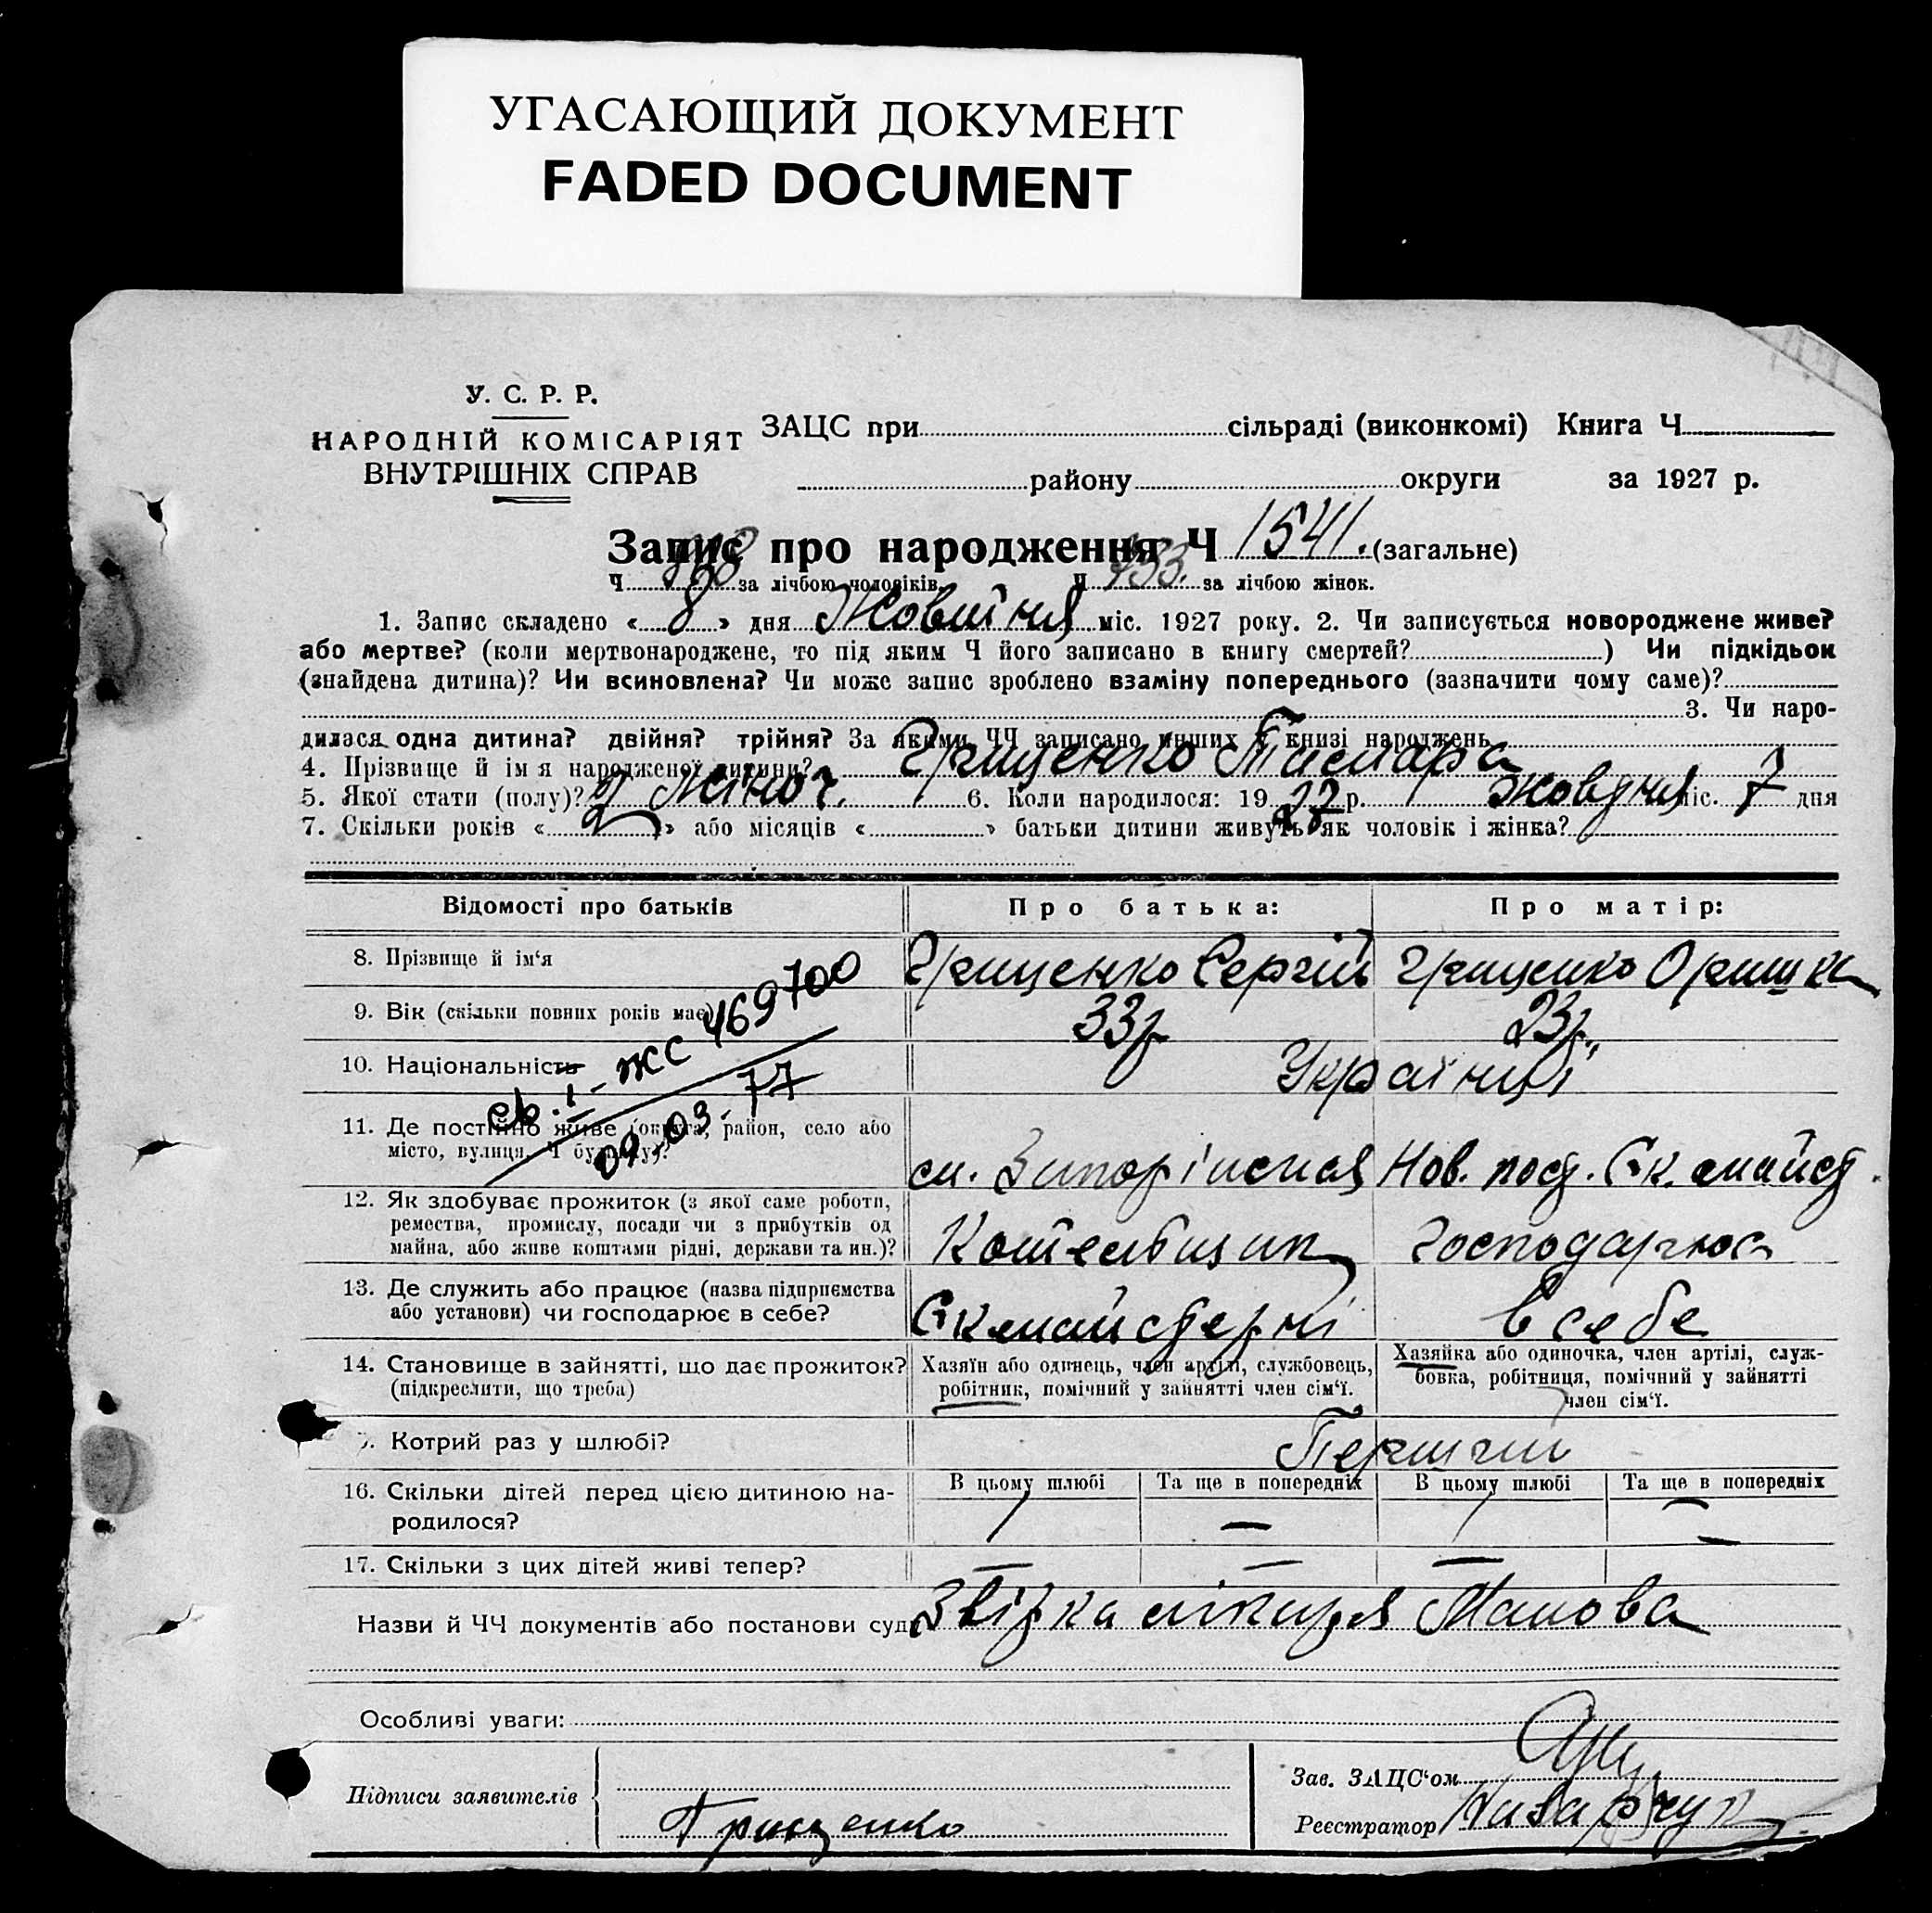 УГАСАЮЩИЙ ДОКУМЕНТ
FADED DOCUMENT
У. С. Р. Р.
НАРОДНІЙ КОМІСАРІЯТ
ВНУТРІШНІХ СПРАВ
ЗАЦС при сільраді (виконкомі) Книга Ч
району округи за 1927 р.
Запис про народження Ч 1541. (загальне)
Ч за лічбою чоловіків. Ч 733. за лічбою жінок.
1. Запис складено « 8 » дня Жовтня міс. 1927 року. 2. Чи записується новороджене живе?
або мертве? (коли мертвонароджене, то під яким Ч його записано в книгу смертей? ) Чи підкідьок
(знайдена дитина)? Чи всиновлена? Чи може запис зроблено взаміну попереднього (зазначити чому саме)?
3. Чи наро-
дилася одна дитина? двійня? трійня? За якими ЧЧ записано инших у книзі народжень
4. Прізвище й ім я народженої дитини? Грищенко Тамара
5. Якої стати (полу)? Жіноч. 6. Коли народилося: 19 27 р. жовтня міс. 7 дня
7. Скільки років « 2 » або місяців « » батьки дитини живуть як чоловік і жінка?
Відомості про батьків
Про батька:
Про матір:
8. Прізвище й ім‘я
Грищенко Сергій
Грищенко Оришка
9. Вік (скільки повних років має)
33 р
23 р.
10. Національність
Українці
св. І - ЖС 469700
09.03.77
11. Де постійно живе (округа, район, село або
місто, вулиця, Ч будинку)?
Нов. пос.
12. Як здобуває прожиток (з якої саме роботи,
ремества, промислу, посади чи з прибутків од
майна, або живе коштами рідні, держави та ин.)?
Господарює
13. Де служить або працює (назва підприємства
або установи) чи господарює в себе?
майстерні
в себе
14. Становище в зайнятті, що дає прожиток?
(підкреслити, що треба)
Хазяїн або одинець, член артілі, службовець,
робітник, помічний у зайнятті член сім‘ї.
Хазяйка або одиночка, член артілі, служ-
бовка, робітниця, помічний у зайнятті
член сім‘ї.
Котрий раз у шлюбі?
Перший
16. Скільки дітей перед цією дитиною на-
родилося?
В цьому шлюбі
Та ще в попередніх
В цьому шлюбі
Та ще в попередніх
1 — 1 —
17. Скільки з цих дітей живі тепер?
— — —
Назви й ЧЧ документів або постанови суду
лікаря
Особливі уваги:
Підписи заявителів
Грищенко
Зав. ЗАЦС‘ом
Реєстратор